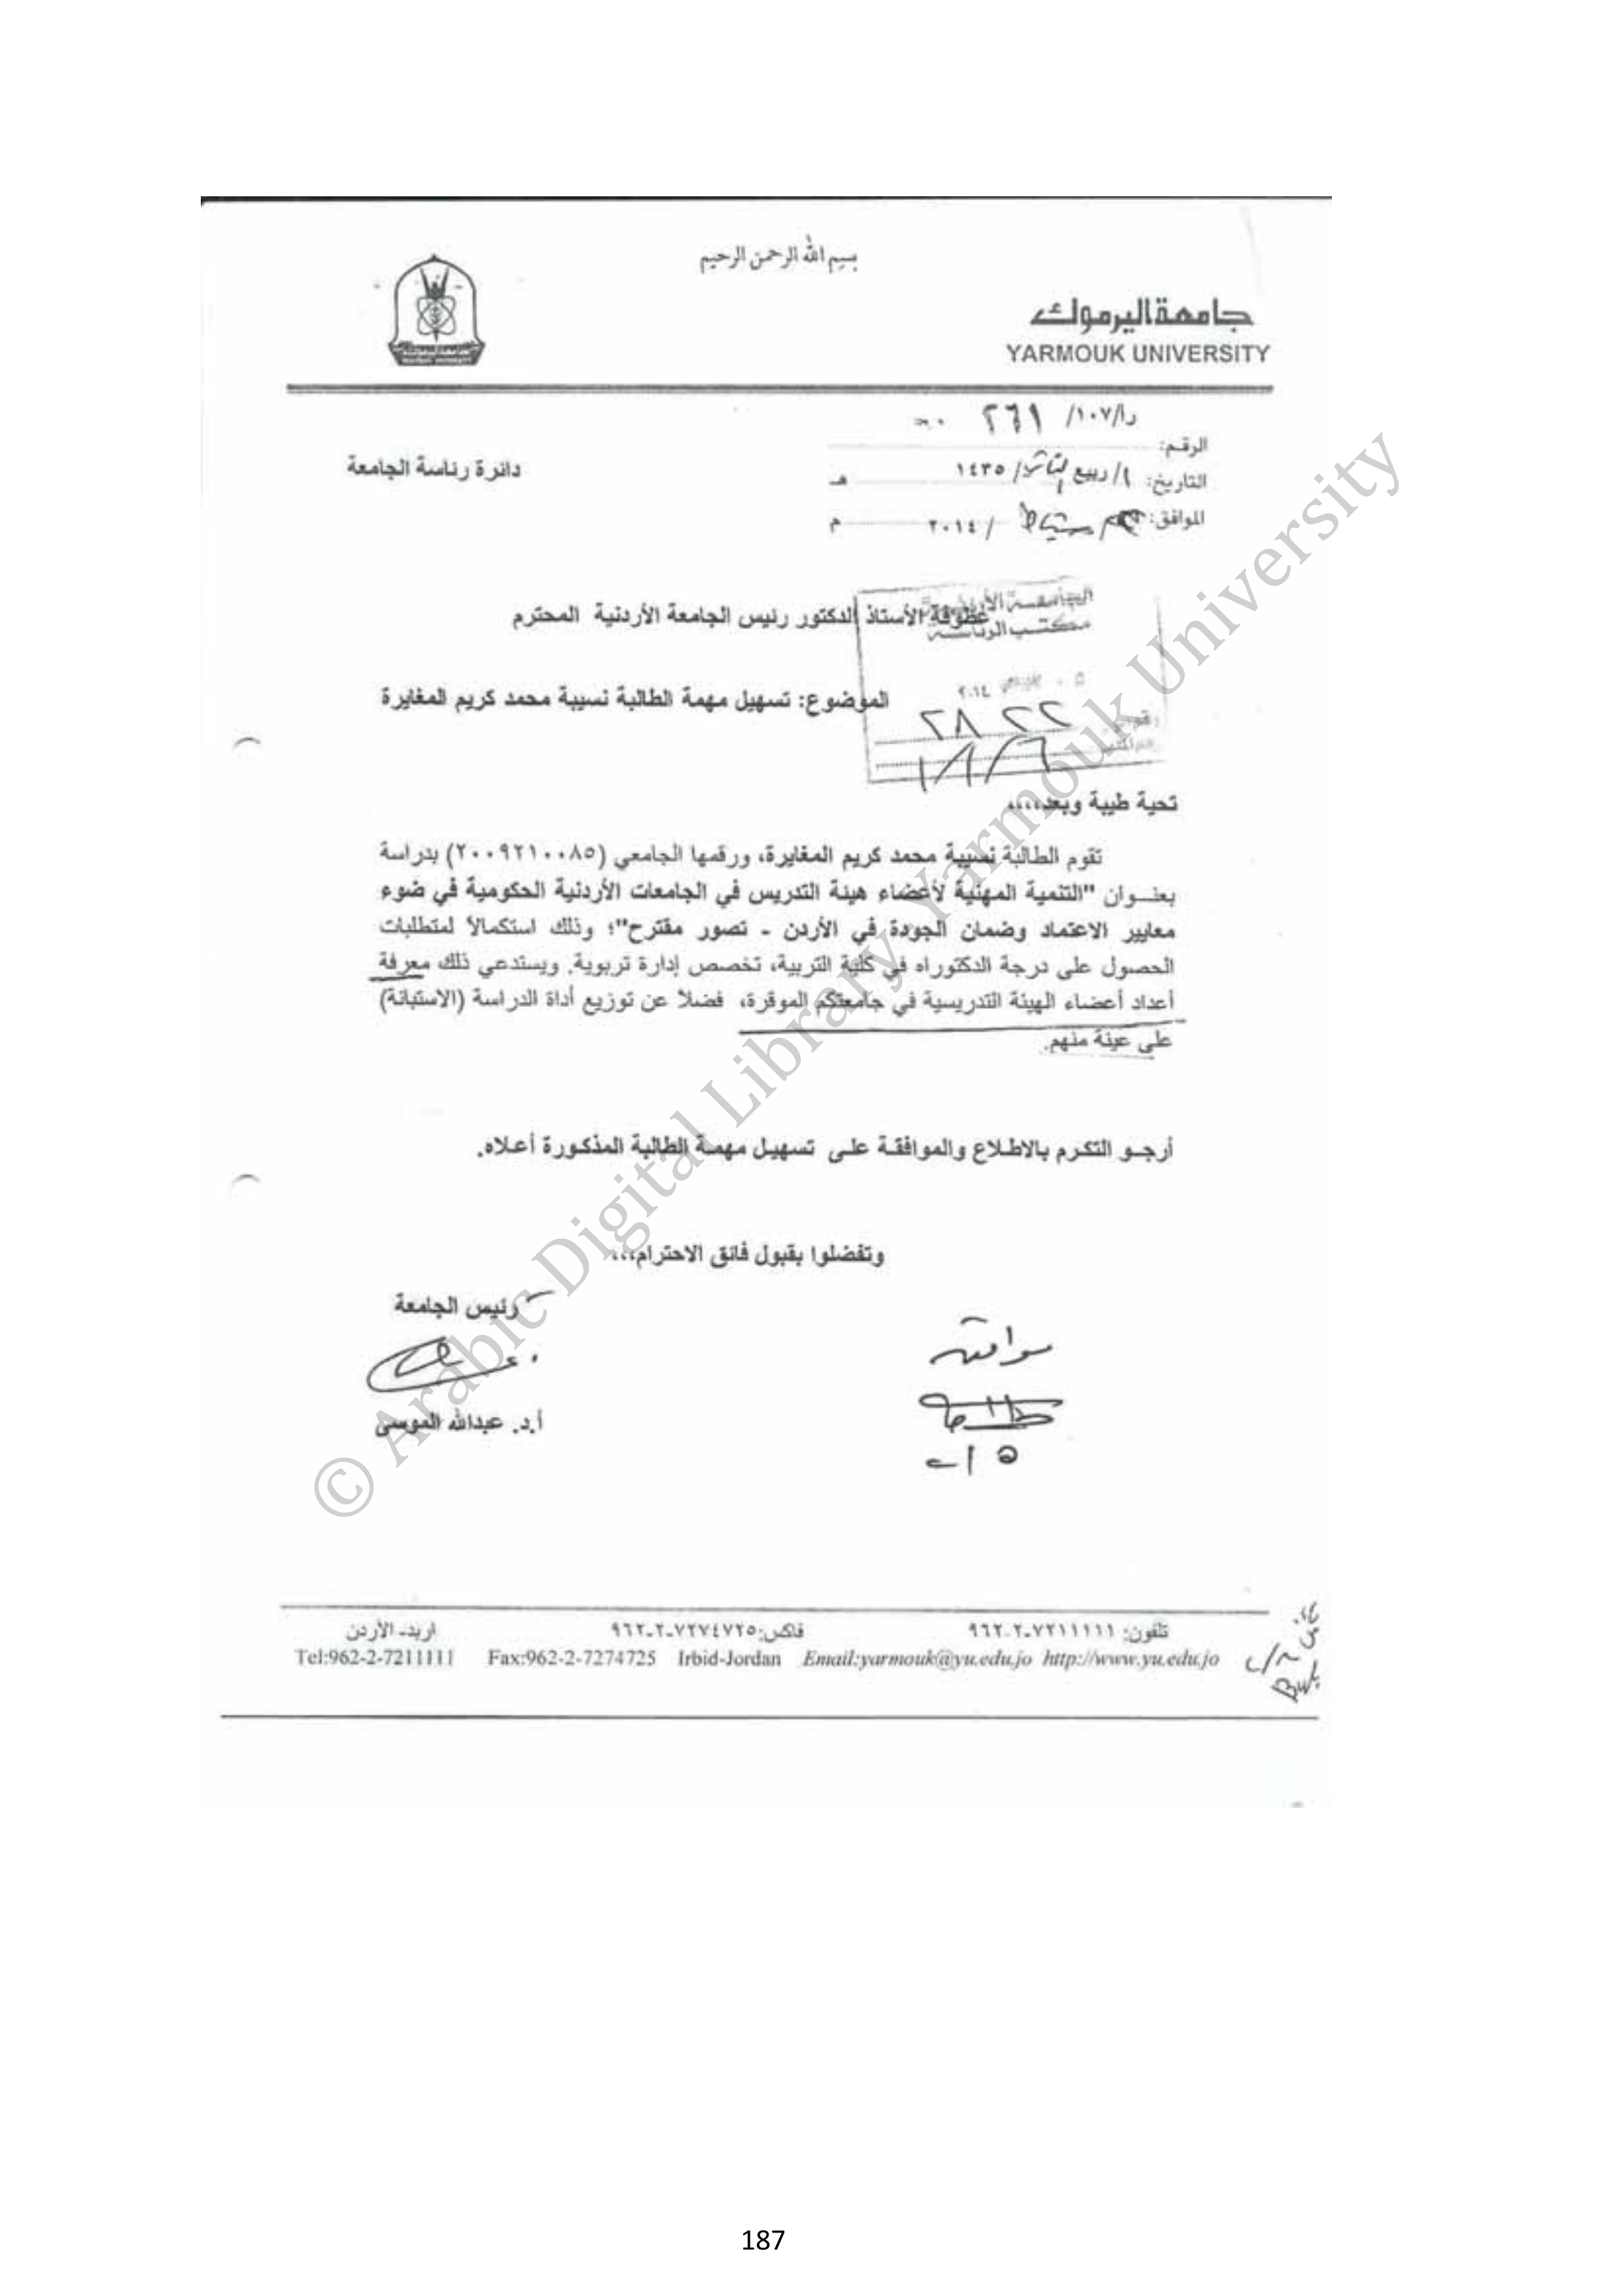 بسم الله الرحمن الرحيم
جامعة اليرموك
YARMOUK UNIVERSITY
الرقم: ر/١٠٧/أ ٢٦١
دائرة رئاسة الجامعة
التاريخ: ربيع / ١٤٣٥ هـ
الموافق: / ٢٠١٤ م
عطوفة الأستاذ الدكتور رئيس الجامعة الأردنية المحترم
مكتب الرئاسة
٢٠١٤
الموضوع: تسهيل مهمة الطالبة نسيبة محمد كريم المغايرة
تحية طيبة وبعد،،،،
تقوم الطالبة نسيبة محمد كريم المغايرة، ورقمها الجامعي (٢٠٠٩٢١٠٠٨٥) بدراسة
بعنــوان "التنمية المهنية لأعضاء هيئة التدريس في الجامعات الأردنية الحكومية في ضوء
معايير الاعتماد وضمان الجودة في الأردن - تصور مقترح"؛ وذلك استكمالاً لمتطلبات
الحصول على درجة الدكتوراه في كلية التربية، تخصص إدارة تربوية. ويستدعي ذلك معرفة
أعداد أعضاء الهيئة التدريسية في جامعتكم الموقرة، فضلاً عن توزيع أداة الدراسة (الاستبانة)
على عينة منهم.
أرجـو التكرم بالاطـلاع والموافقـة علـى تسهيـل مهمـة الطالبة المذكـورة أعـلاه.
وتفضلوا بقبول فائق الاحترام،،،
رئيس الجامعة
أ.د. عبدالله الموسى
موافق
تلفون: ٧٢١١١١١-٢-٩٦٢ فاكس:٧٢٧٤٧٢٥-٢-٩٦٢ اربد- الأردن
Tel:962-2-7211111 Fax:962-2-7274725 Irbid-Jordan Email:yarmouk@yu.edu.jo http://www.yu.edu.jo
© Arabic Digital Library Yarmouk University
187